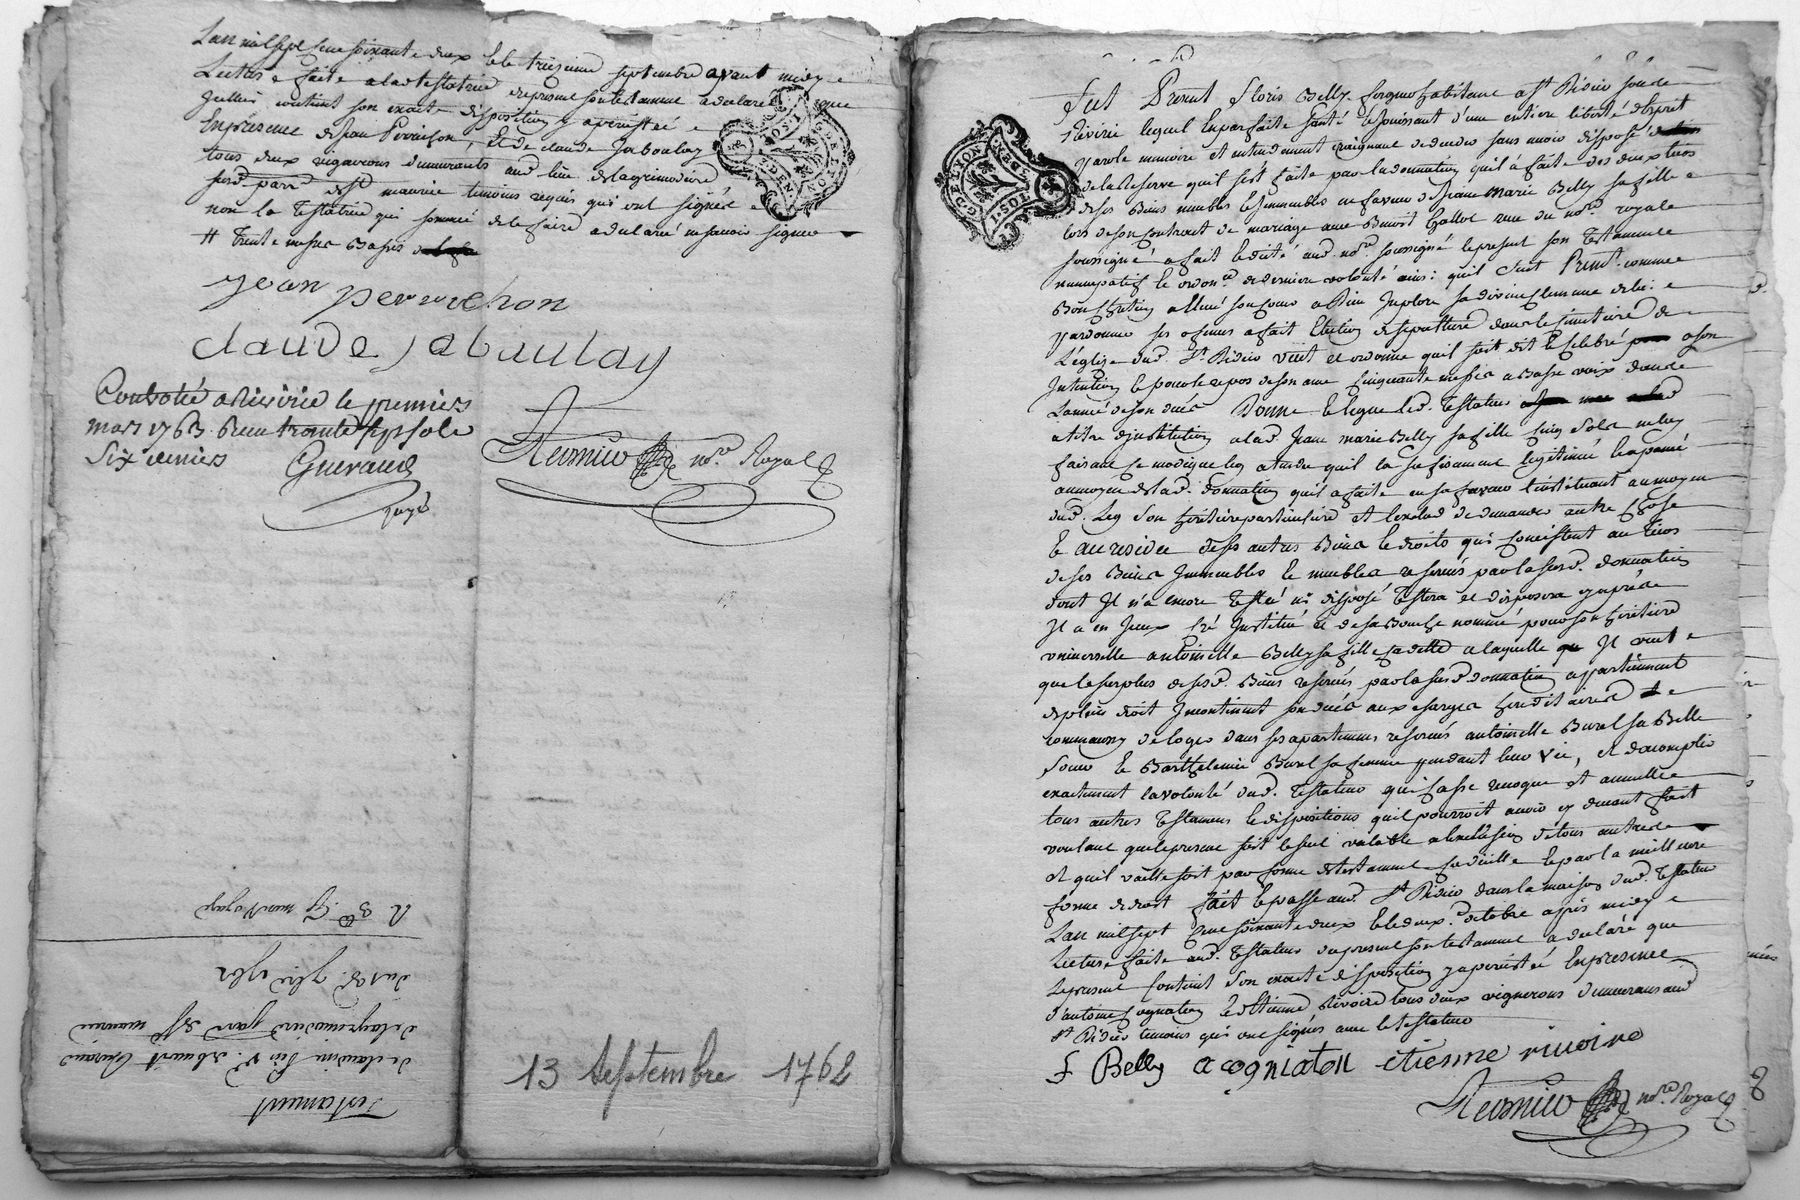 Lan mil sept cent soixante deux & le treizieme septembre avant midy
Lecture faite a lad testatrice du present son testament a declaré que
Jcelluy contient son exacte disposition y a persisté
En presence de Jean Perrachon, Et de claude Jaboulay
tous deux vignerons demeurants aud lieu de lagrimodiere
susd. parr. de St maurice temoins requis qui ont signés
non la Testatrice qui sommée de le faire a declaré ne savoir signer
# trente messes Basses
jean perrachon
claude jaboulay
Controllé a Riverie le premiers
mars 1763. Reçu trente sept sols
six deniers Gueraud
payé
no.re Royal
G. DE LYON
Testament
de la grimodiere parr de St maurice
du 13e. 7bre 1762
13 Septembre 1762
G. DE LYON
Fut Present Floris Belly habitant a St Didier sous
Riverie lequel En parfaite santé & Jouissant d'une entiere liberté desprit
parole memoire et entendement craignant de deceder sans avoir disposé
de la Reserve quil s'est faitte par la donnation quil a faite des deux tiers
de ses Biens meubles & Jmmeubles en faveur de Jeanne Marie Belly sa fille
lors de son contrat de mariage avec Benoit reçu du no.re royale
soussigné a fait & dicté aud. no.re soussigné le present son Testament
nuncupatif & ordon.ce de derniere volonté ainsi quil suit Prem.t comme
Bon chretien a Elevé son coeur a Dieu Jmploré sa divine clemence de luy
pardonner ses ofenses a fait Election de sepulture dans le cimetiere de
L'église dud. St. Didier veut et ordonne quil soit dit & celebré a son
Jntention & pour le repos de son ame Cinquante messes a Basse voix dans
L'année de son deces Donne & legue led. Testateur
a titre d'jnstitution a lad. Jeanne marie Belly sa fille Cinq sols
faisant ce modique leg attendu quil la sufisament legitimée & apanée
au moyen de lad. donnation quil a faite en sa faveur l'instituant au moyen
dud. Leg son heritiere particuliere et de demander autre chose
& au residu de ses autres Biens & droits qui consistent au tiers
de ses Biens Jmmeubles & meubles reservés par la susd. donnation
dont Jl n'a encore Testé ni disposé Testera et disposera cy apres
Jl a en Jceux Jnstitué et de sa Bouche nommé pour son heritiere
universelle antoinette Belly sa fille cadette a laquelle Jl veut
que le surplus de sesd. Biens reservés par la susd donnation appartiennent
de plein droit Jncontinent son deces aux charges hereditaires
de loger dans ses apartemens reservés antoinette Burel sa Belle
soeur & Barthelemie Burel sa femme pendant leur vie, et d'acomplir
exactement la volonté dud. Testateur qui casse revoque et annulle
tous autres Testamens & dispositions quil pourroit avoir cy devant fait
voulant que le present soit le seul valable a l'exclusion de tous autres
et quil vaille soit par forme de testament codicille & par la meilleure
forme de droit fait & passé aud. St Didier dans la maison dud. Testateur
Lan mil sept cent soixante deux & le deux.e octobre après midy
Lecture faite aud. Testateur du present son testament a declaré que
Le present contient son exacte disposition y a persisté En presence
d'antoine cogniaton & Etienne Rivoire tous deux vignerons demeurans aud
St Didier temoins qui ont signés avec le testateur
f Belly a cogniaton etienne rivoire
no.re Royal